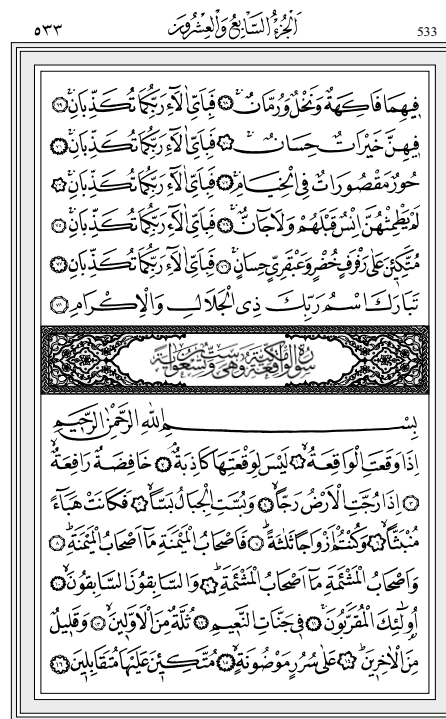 ٥٣٣ اَلْجُزْءُ السَّابِعُ وَالْعِشْرُونَ 533
فِيهِمَا فَاكِهَةٌ وَنَخْلٌ وَرُمَّانٌۚ ﴿٦٨﴾ فَبِاَيِّ اٰلَٓاءِ رَبِّكُمَا تُكَذِّبَانِۚ ﴿٦٩﴾
فِيهِنَّ خَيْرَاتٌ حِسَانٌۚ ﴿٧٠﴾ فَبِاَيِّ اٰلَٓاءِ رَبِّكُمَا تُكَذِّبَانِۚ ﴿٧١﴾
حُورٌ مَقْصُورَاتٌ فِي الْخِيَامِۚ ﴿٧٢﴾ فَبِاَيِّ اٰلَٓاءِ رَبِّكُمَا تُكَذِّبَانِۚ ﴿٧٣﴾
لَمْ يَطْمِثْهُنَّ اِنْسٌ قَبْلَهُمْ وَلَا جَٓانٌّۚ ﴿٧٤﴾ فَبِاَيِّ اٰلَٓاءِ رَبِّكُمَا تُكَذِّبَانِۚ ﴿٧٥﴾
مُتَّكِـِٔينَ عَلٰى رَفْرَفٍ خُضْرٍ وَعَبْقَرِيٍّ حِسَانٍۚ ﴿٧٦﴾ فَبِاَيِّ اٰلَٓاءِ رَبِّكُمَا تُكَذِّبَانِ ﴿٧٧﴾
تَبَارَكَ اسْمُ رَبِّكَ ذِي الْجَلَالِ وَالْاِكْرَامِ ﴿٧٨﴾
سُورَةُ الْوَاقِعَةِ مَكِّيَّةٌ وَهِيَ سِتٌّ وَتِسْعُونَ اٰيَةً
بِسْمِ اللّٰهِ الرَّحْمٰنِ الرَّحِيمِ
اِذَا وَقَعَتِ الْوَاقِعَةُۙ ﴿١﴾ لَيْسَ لِوَقْعَتِهَا كَاذِبَةٌۢ ﴿٢﴾ خَافِضَةٌ رَافِعَةٌۙ
﴿٣﴾ اِذَا رُجَّتِ الْاَرْضُ رَجًّاۙ ﴿٤﴾ وَبُسَّتِ الْجِبَالُ بَسًّاۙ ﴿٥﴾ فَكَانَتْ هَبَٓاءً
مُنْبَثًّاۙ ﴿٦﴾ وَكُنْتُمْ اَزْوَاجًا ثَلٰثَةًۜ ﴿٧﴾ فَاَصْحَابُ الْمَيْمَنَةِ مَٓا اَصْحَابُ الْمَيْمَنَةِۜ ﴿٨﴾
وَاَصْحَابُ الْمَشْـَٔمَةِ مَٓا اَصْحَابُ الْمَشْـَٔمَةِۜ ﴿٩﴾ وَالسَّابِقُونَ السَّابِقُونَۙ ﴿١٠﴾
اُو۬لٰٓئِكَ الْمُقَرَّبُونَۚ ﴿١١﴾ فِي جَنَّاتِ النَّعِيمِ ﴿١٢﴾ ثُلَّةٌ مِنَ الْاَوَّلِينَۙ ﴿١٣﴾ وَقَلِيلٌ
مِنَ الْاٰخِرِينَۜ ﴿١٤﴾ عَلٰى سُرُرٍ مَوْضُونَةٍۙ ﴿١٥﴾ مُتَّكِـِٔينَ عَلَيْهَا مُتَقَابِلِينَ ﴿١٦﴾